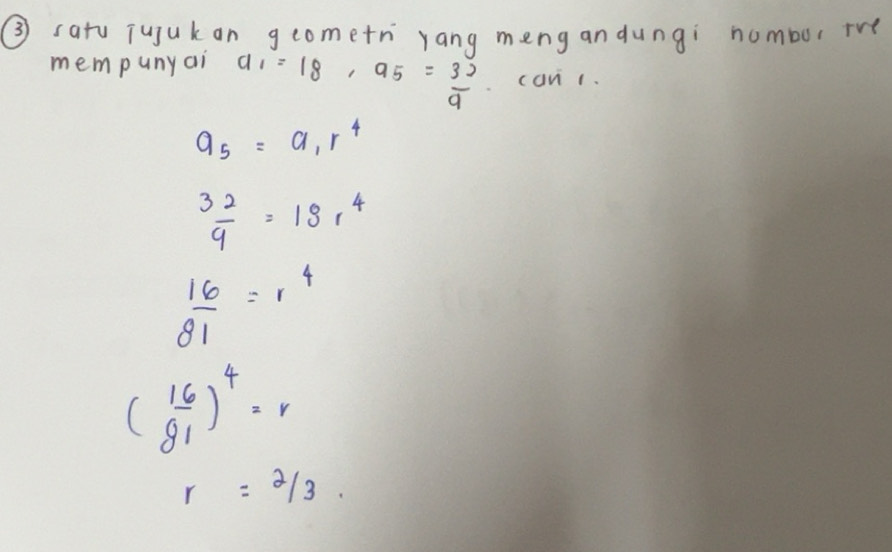 ③ satu jujukan geometri yang mengandungi nombor +ve
mempunyai a₁ = 18 , a₅ = 32/9 . cari r.
a₅ = a₁r⁴
32/9 = 18r⁴
16/81 = r⁴
(16/81)⁴ = r
r = 2/3 .